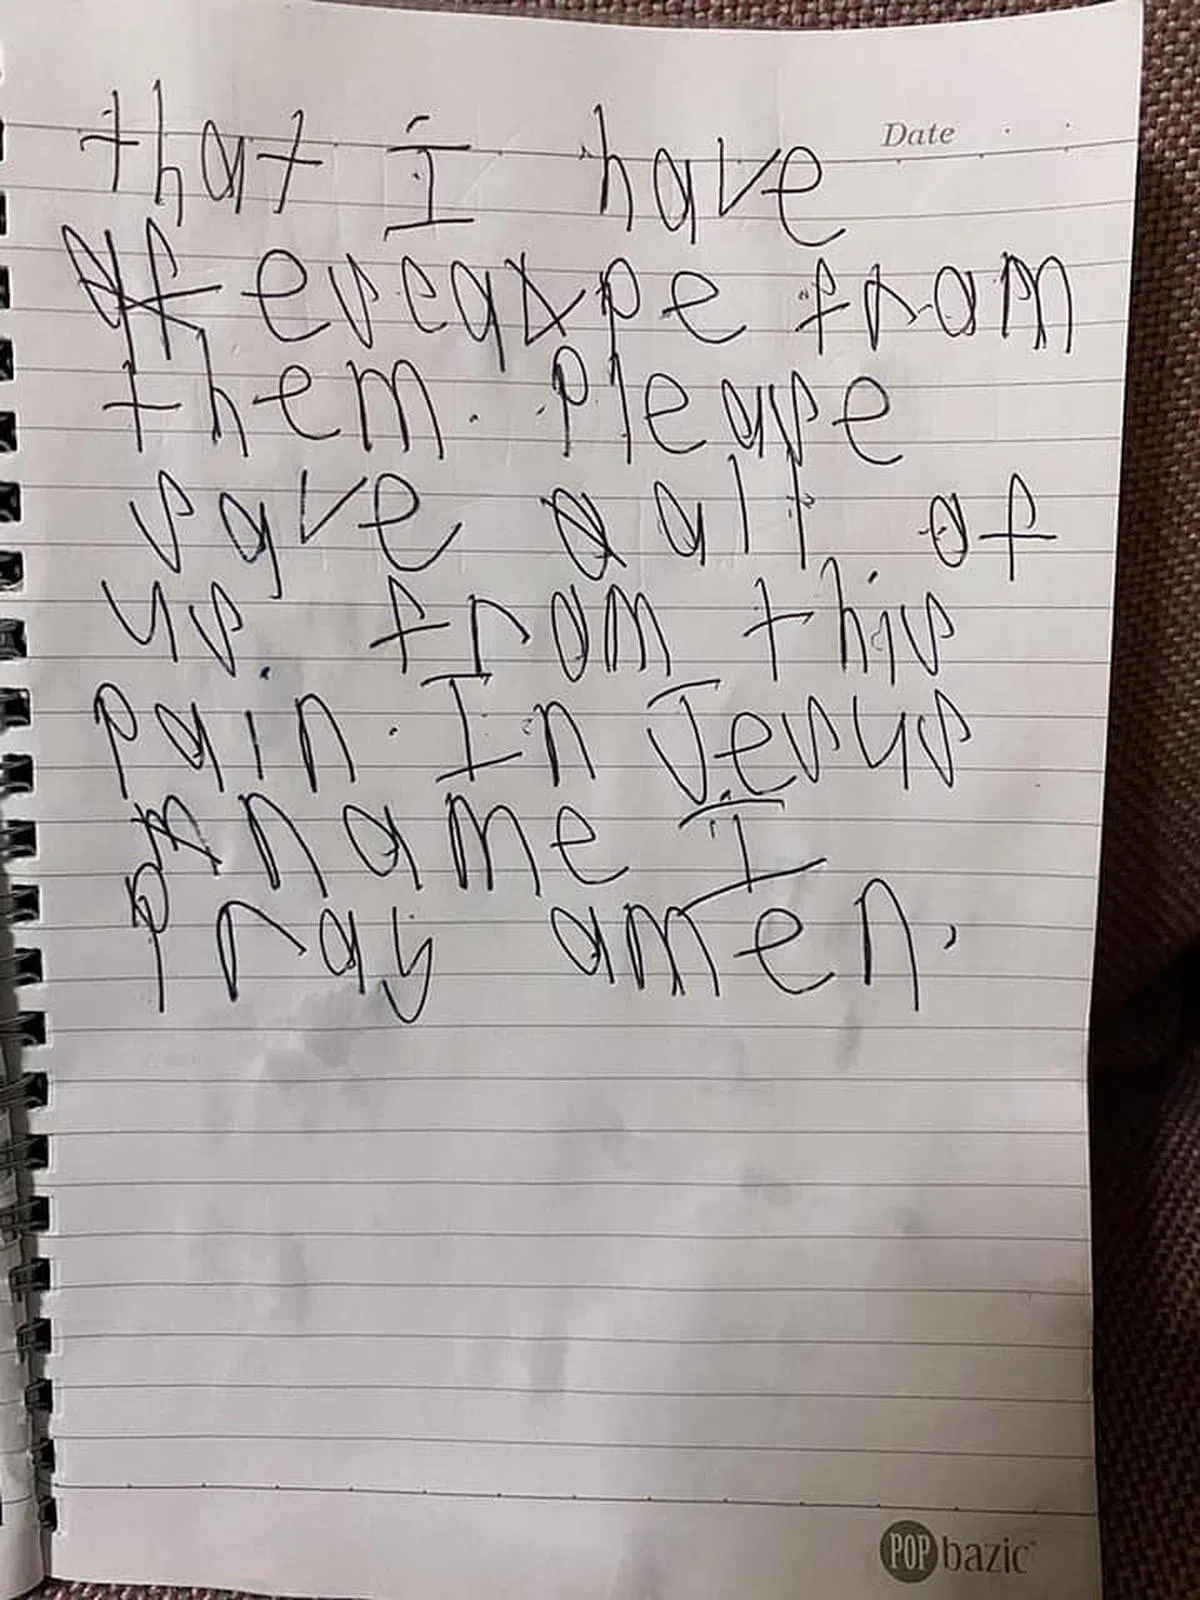 Date
that I have
eveaxpe from
them. Please
save all of
us. from this
pain. In Jesus
name I
Pray amen.
POP bazic